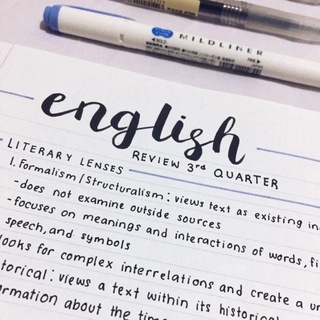 MILDLINER
english
REVIEW 3rd QUARTER
LITERARY LENSES
1. Formalism/Structuralism: views text as existing
-does not examine outside sources
-focuses on meanings and interactions of words,
speech, and symbols
looks for complex interrelations and create a
views a text within its
about the